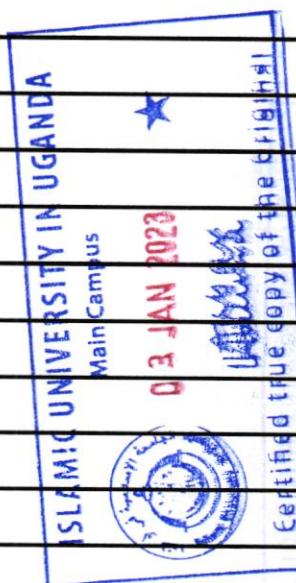 ISLAMIC UNIVERSITY IN UGANDA
Main Campus
03 JAN 2023
Certified true copy of the original